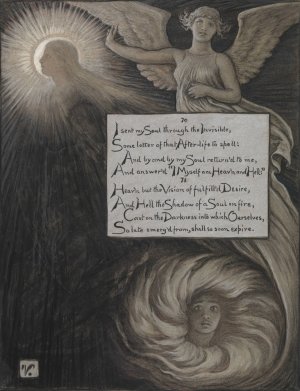 70
I sent my Soul through the Invisible,
Some letter of that After-life to spell:
And by and by my Soul return'd to me,
And answer'd "I Myself am Heav'n and Hell:"
71
Heav'n but the Vision of fulfill'd Desire,
And Hell the Shadow of a Soul on fire,
Cast on the Darkness into which Ourselves,
So late emerg'd from, shall so soon expire.
V